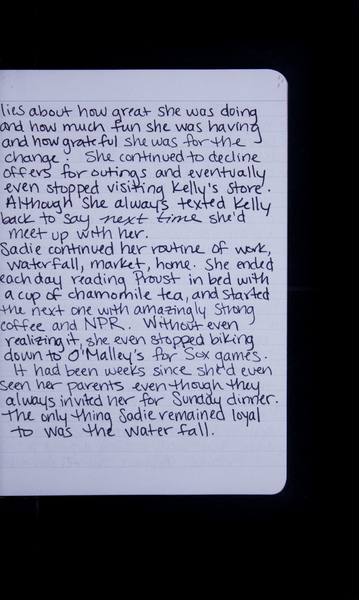 lies about how great she was doing
and how much fun she was having
and how grateful she was for the
change. She continued to decline
offers for outings and eventually
even stopped visiting Kelly's store.
Although she always texted Kelly
back to say next time she'd
meet up with her.
Sadie continued her routine of work,
waterfall, market, home. She ended
each day reading Proust in bed with
a cup of chamomile tea, and started
the next one with amazingly strong
coffee and NPR. Without even
realizing it, she even stopped biking
down to O'Malley's for Sox games.
It had been weeks since she'd even
seen her parents even though they
always invited her for Sunday dinner.
The only thing Sadie remained loyal
to was the waterfall.